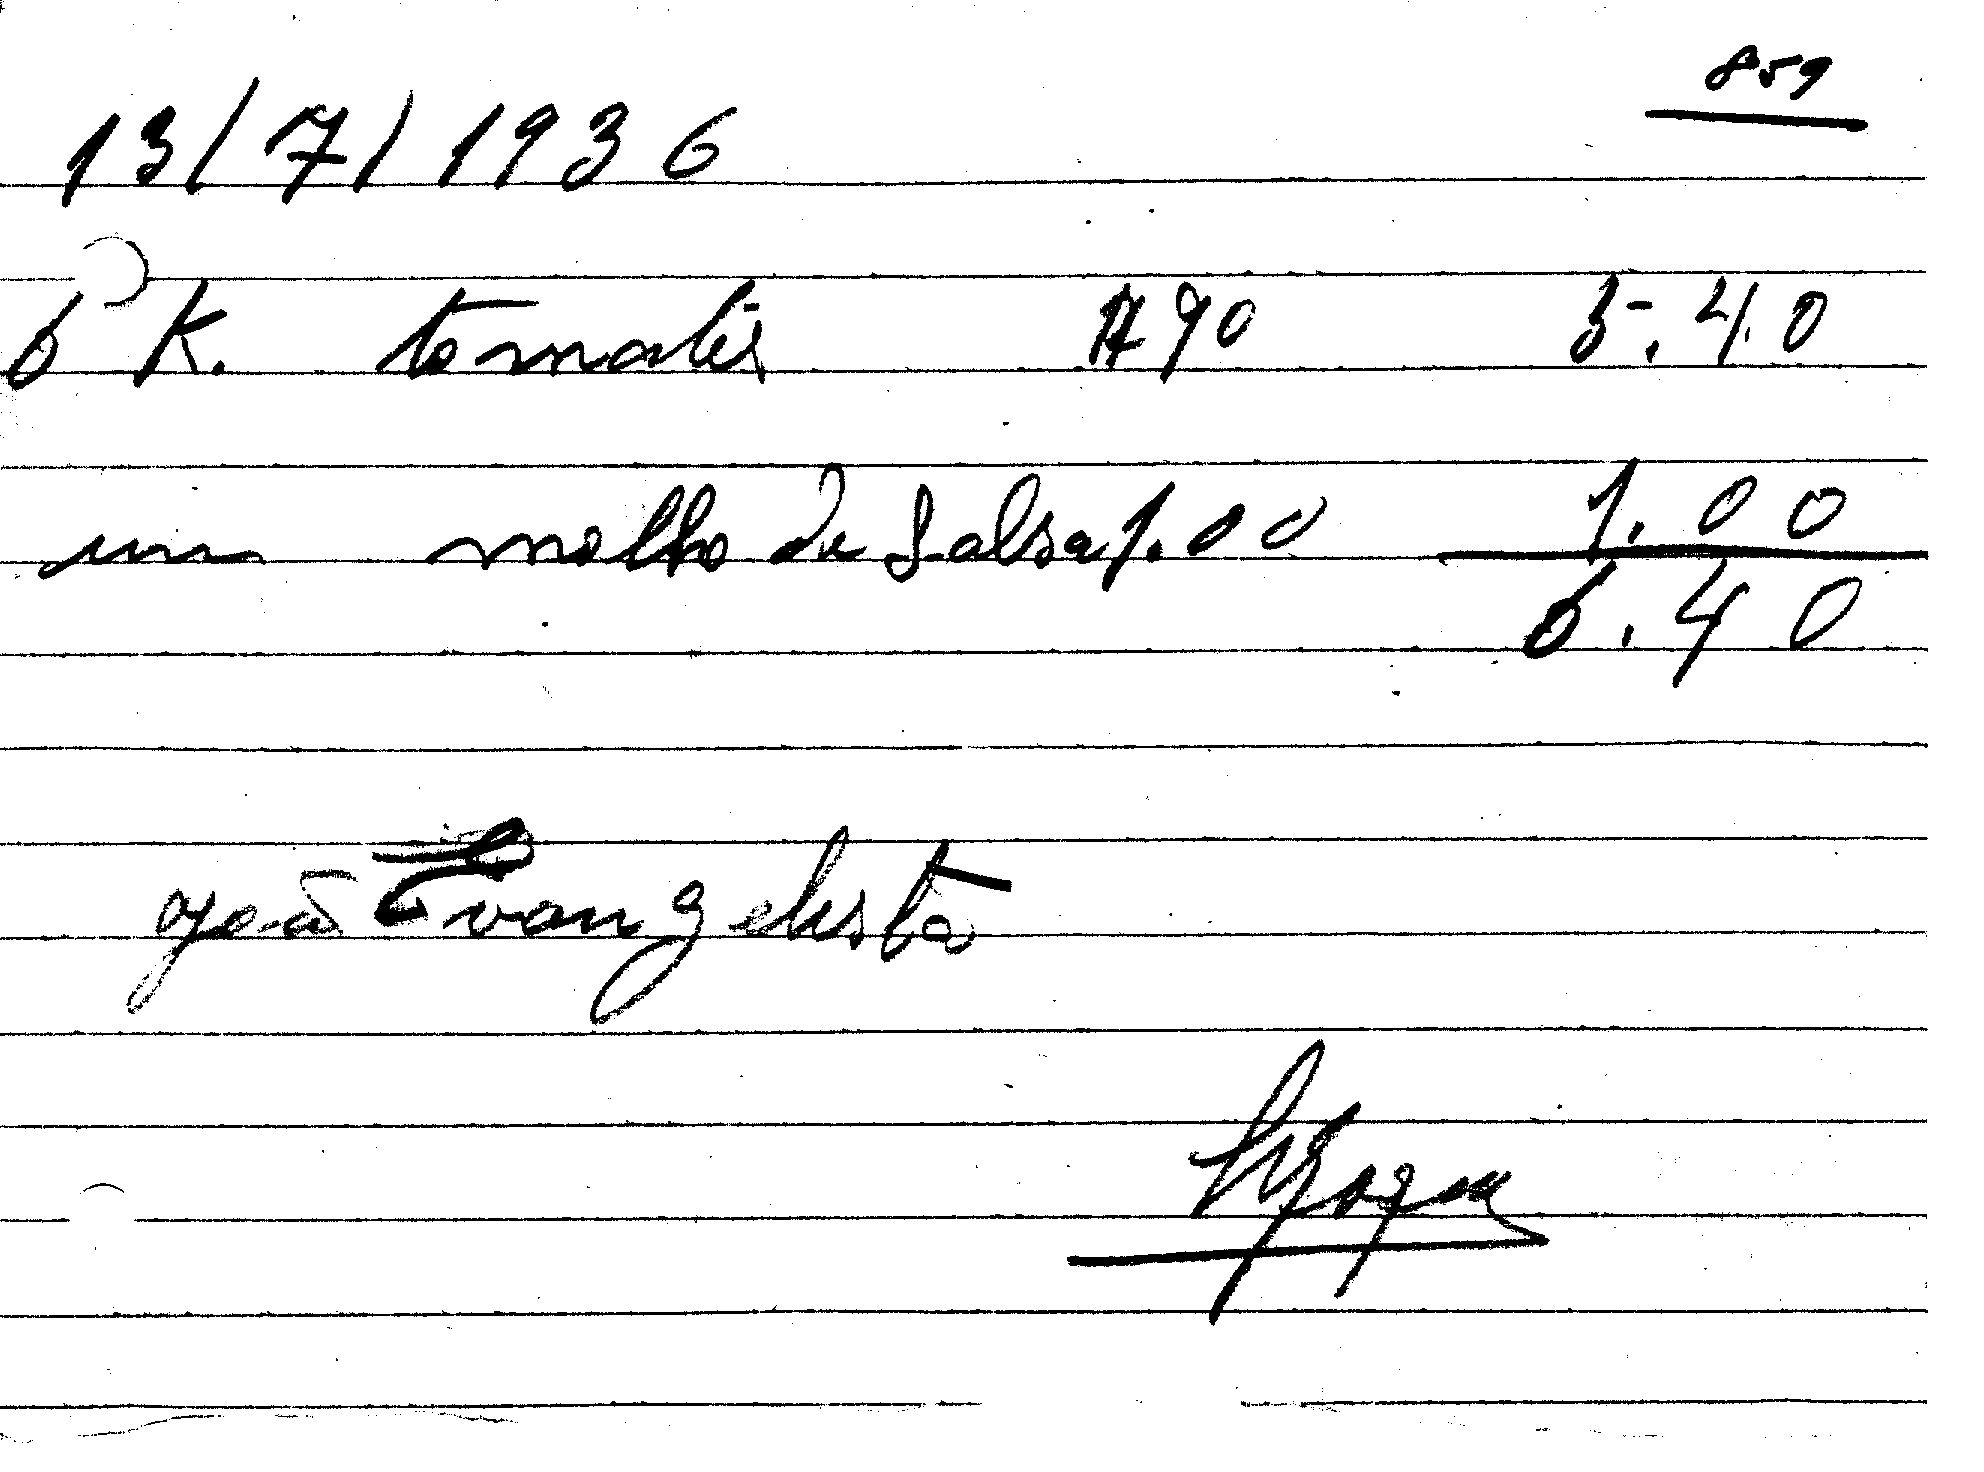 859
13/7/1936
6 K. tomatis 90 5.40
um molho de Salsa 1.00 1.00
6.40
João Evangelista